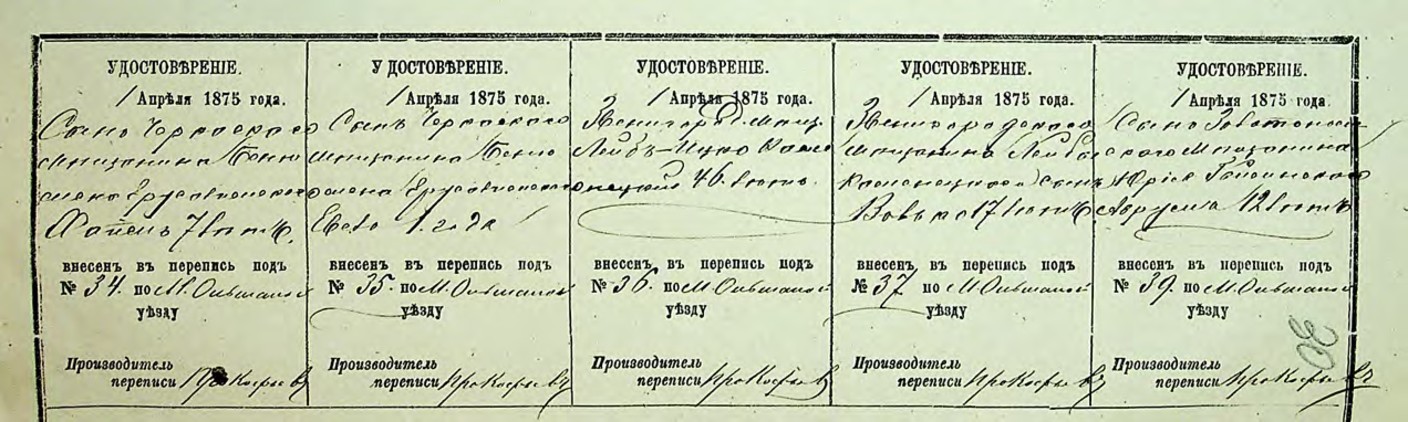 УДОСТОВѢРЕНІЕ.
1 Апрѣля 1875 года.
Сынъ Черкаского
мѣщанина Бенио
мена Ерусалимского
Хаимъ 7 лѣтъ.
внесенъ въ перепись подъ
№ 34. по М. Ольшаной
уѣзду
Производитель
переписи Прокофьевъ
УДОСТОВѢРЕНІЕ.
1 Апрѣля 1875 года.
Сынъ Черкаского
мѣщанина Бенио
мена Ерусалимского
1. года
внесенъ въ перепись подъ
№ 35. по М. Ольшаной
уѣзду
Производитель
переписи Прокофьевъ
УДОСТОВѢРЕНІЕ.
1 Апрѣля 1875 года.
Звенигород. мѣщ.
Лейбъ-Ицко Каме
нецкий 46. лѣтъ.
внесенъ въ перепись подъ
№ 36. по М. Ольшаной
уѣзду
Производитель
переписи Прокофьевъ
УДОСТОВѢРЕНІЕ.
1 Апрѣля 1875 года.
Звенигородского
мѣщанина Лейбы
Каменецкого сынъ
Вовько 17 лѣтъ
внесенъ въ перепись подъ
№ 37 по М. Ольшаной
уѣзду
Производитель
переписи Прокофьевъ
УДОСТОВѢРЕНІЕ.
1 Апрѣля 1875 года.
Сынъ Золотонош-
ского мѣщанина
Юрія
12 лѣтъ
внесенъ въ перепись подъ
№ 39. по М. Ольшаной
уѣзду
30
Производитель
переписи Прокофьевъ